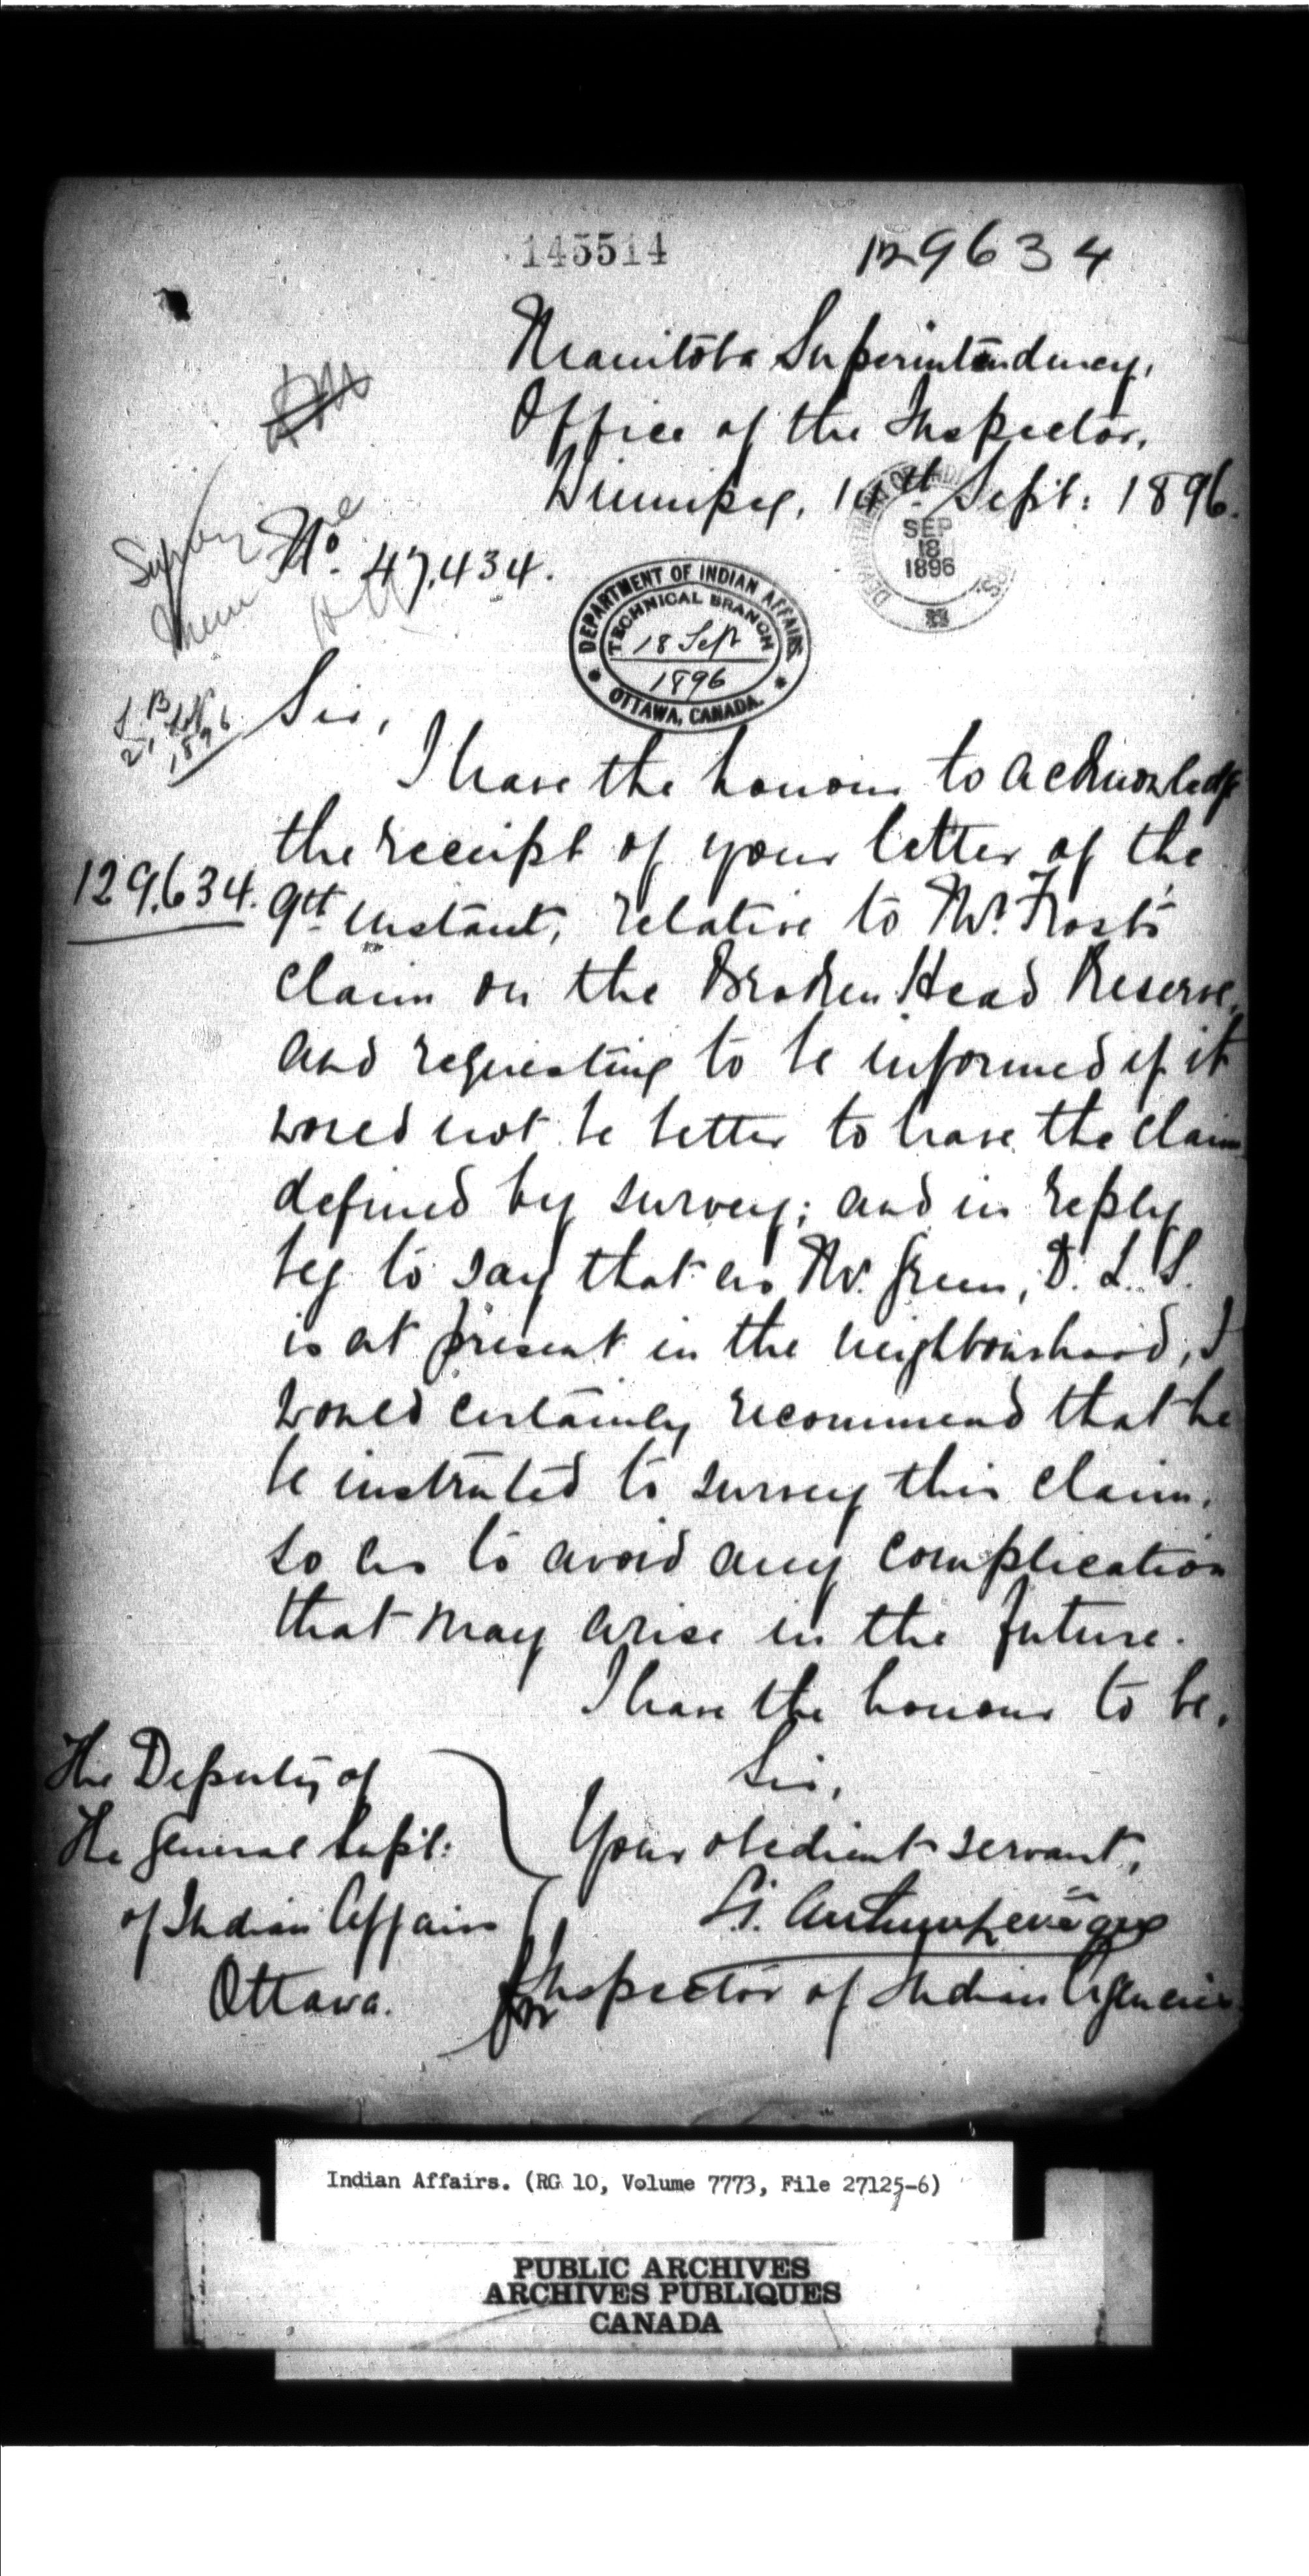 145514
129634
Manitoba Superintendency,
Office of the Inspector,
Winnipeg, 14th Sept: 1896.
DEPARTMENT OF INDIAN
SEP
18
1896
No. 47,434.
DEPARTMENT OF INDIAN AFFAIRS.
TECHNICAL BRANCH
18 Sept
1896
OTTAWA, CANADA.
1896
Sir,
I have the honour to acknowledge
the receipt of your letter of the
129,634.
9th instant, relative to Mr. Frost's
claim on the Broken Head Reserve,
and requesting to be informed if it
would not be better to have the claim
defined by survey; and in reply
beg to say that as Mr. Green, D. L. S.
is at present in the neighbourhood, I
would certainly recommend that he
be instructed to survey this claim,
so as to avoid any complication
that may arise in the future.
I have the honour to be,
Sir,
Your obedient servant,
for Inspector of Indian Agencies
The Deputy of
The General Supt:
of Indian Affairs
Ottawa.
Indian Affairs. (RG 10, Volume 7773, File 27125-6)
PUBLIC ARCHIVES
ARCHIVES PUBLIQUES
CANADA